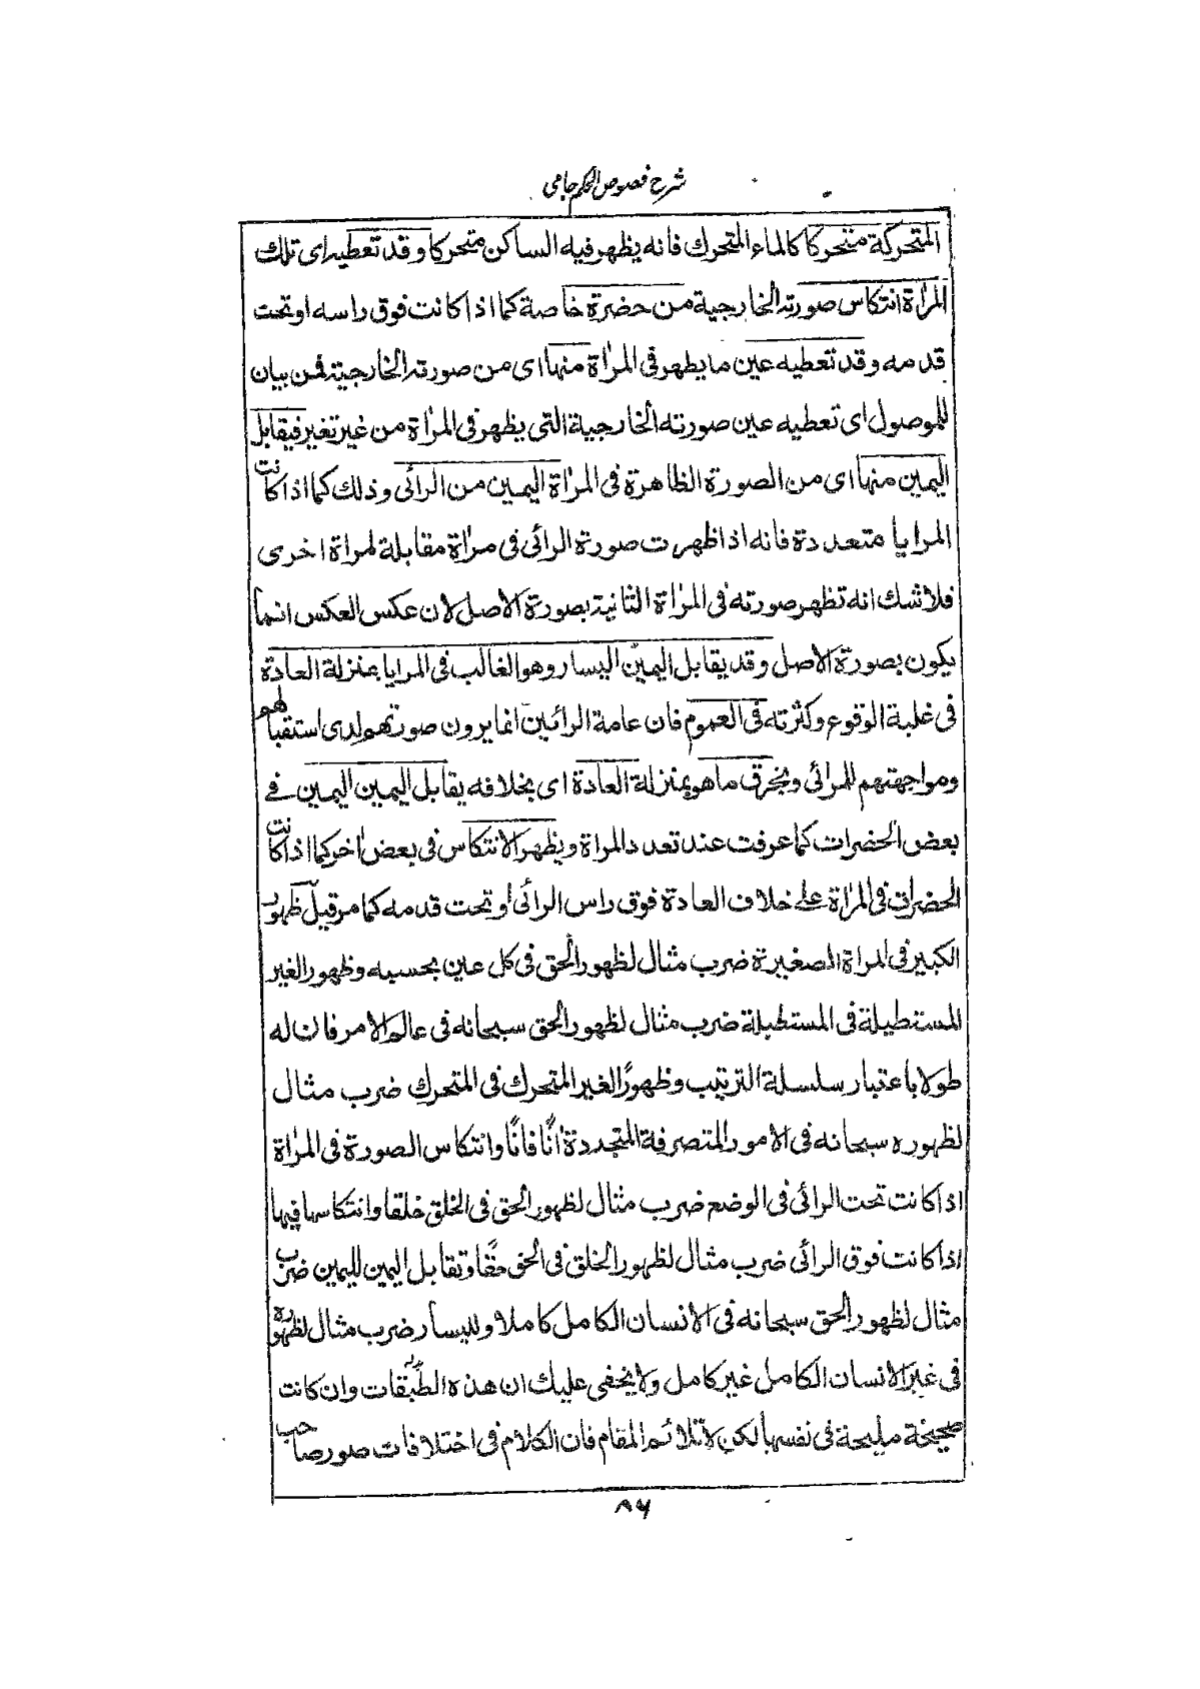 شرح فصوص الحكم جامی
المتحركة متحركا كالماء المتحرك فانه يظهر فيه الساكن متحركا وقد تعطيه اى تلك
المرأة انتكاس صورته الخارجية من حضرة خاصة كما اذا كانت فوق راسه او تحت
قدمه وقد تعطيه عين ما يظهر فى المرأة منها اى من صورته الخارجية فمن بيان
للموصول اى تعطيه عين صورته الخارجية التى يظهر فى المرأة من غير تغير فيقابل
اليمين منها اى من الصورة الظاهرة فى المرأة اليمين من الرائى وذلك كما اذا كانت
المرايا متعددة فانه اذا ظهرت صورة الرائى فى مرأة مقابلة لمراة اخرى
فلا شك انه تظهر صورته فى المرأة الثانية بصورة الاصل لان عكس العكس انما
يكون بصورة الاصل وقد يقابل اليمين اليسار وهو الغالب فى المرايا بمنزلة العادة
فى غلبة الوقوع وكثرته فى العموم فان عامة الرائين انما يرون صورتهم لدى استقبالهم
ومواجهتهم للمرائى وبخرق ما هو بمنزلة العادة اى بخلافه يقابل اليمين اليمين فے
بعض الحضرات كما عرفت عند تعدد المراة ويظهر الانتكاس فى بعض اخر كما اذا كانت
الحضرات فى المرأة على خلاف العادة فوق راس الرائى او تحت قدمه كما مر قيل ظهور
الكبير فى المراة الصغيرة ضرب مثال لظهور الحق فى كل عين بحسبه وظهور الغير
المستطيلة فى المستطيلة ضرب مثال لظهور الحق سبحانه فى عالم الامر فان له
طولا باعتبار سلسلة الترتيب وظهور الغير المتحرك فى المتحرك ضرب مثال
لظهوره سبحانه فى الامور المتصرفة المتجددة انًا فانًا وانتكاس الصورة فى المرأة
اذا كانت تحت الرائى فى الوضع ضرب مثال لظهور الحق فى الخلق خلقا وانتكاسها فيها
اذا كانت فوق الرائى ضرب مثال لظهور الخلق فى الحق حقًا وتقابل اليمين لليمين ضرب
مثال لظهور الحق سبحانه فى الانسان الكامل كاملا ولليسار ضرب مثال لظهوره
فى غير الانسان الكامل غير كامل ولا يخفى عليك ان هذه الطبقات وان كانت
صحيحة مليحة فى نفسها لكن لا تلائم المقام فان الكلام فى اختلافات صور صاحب
۸۶